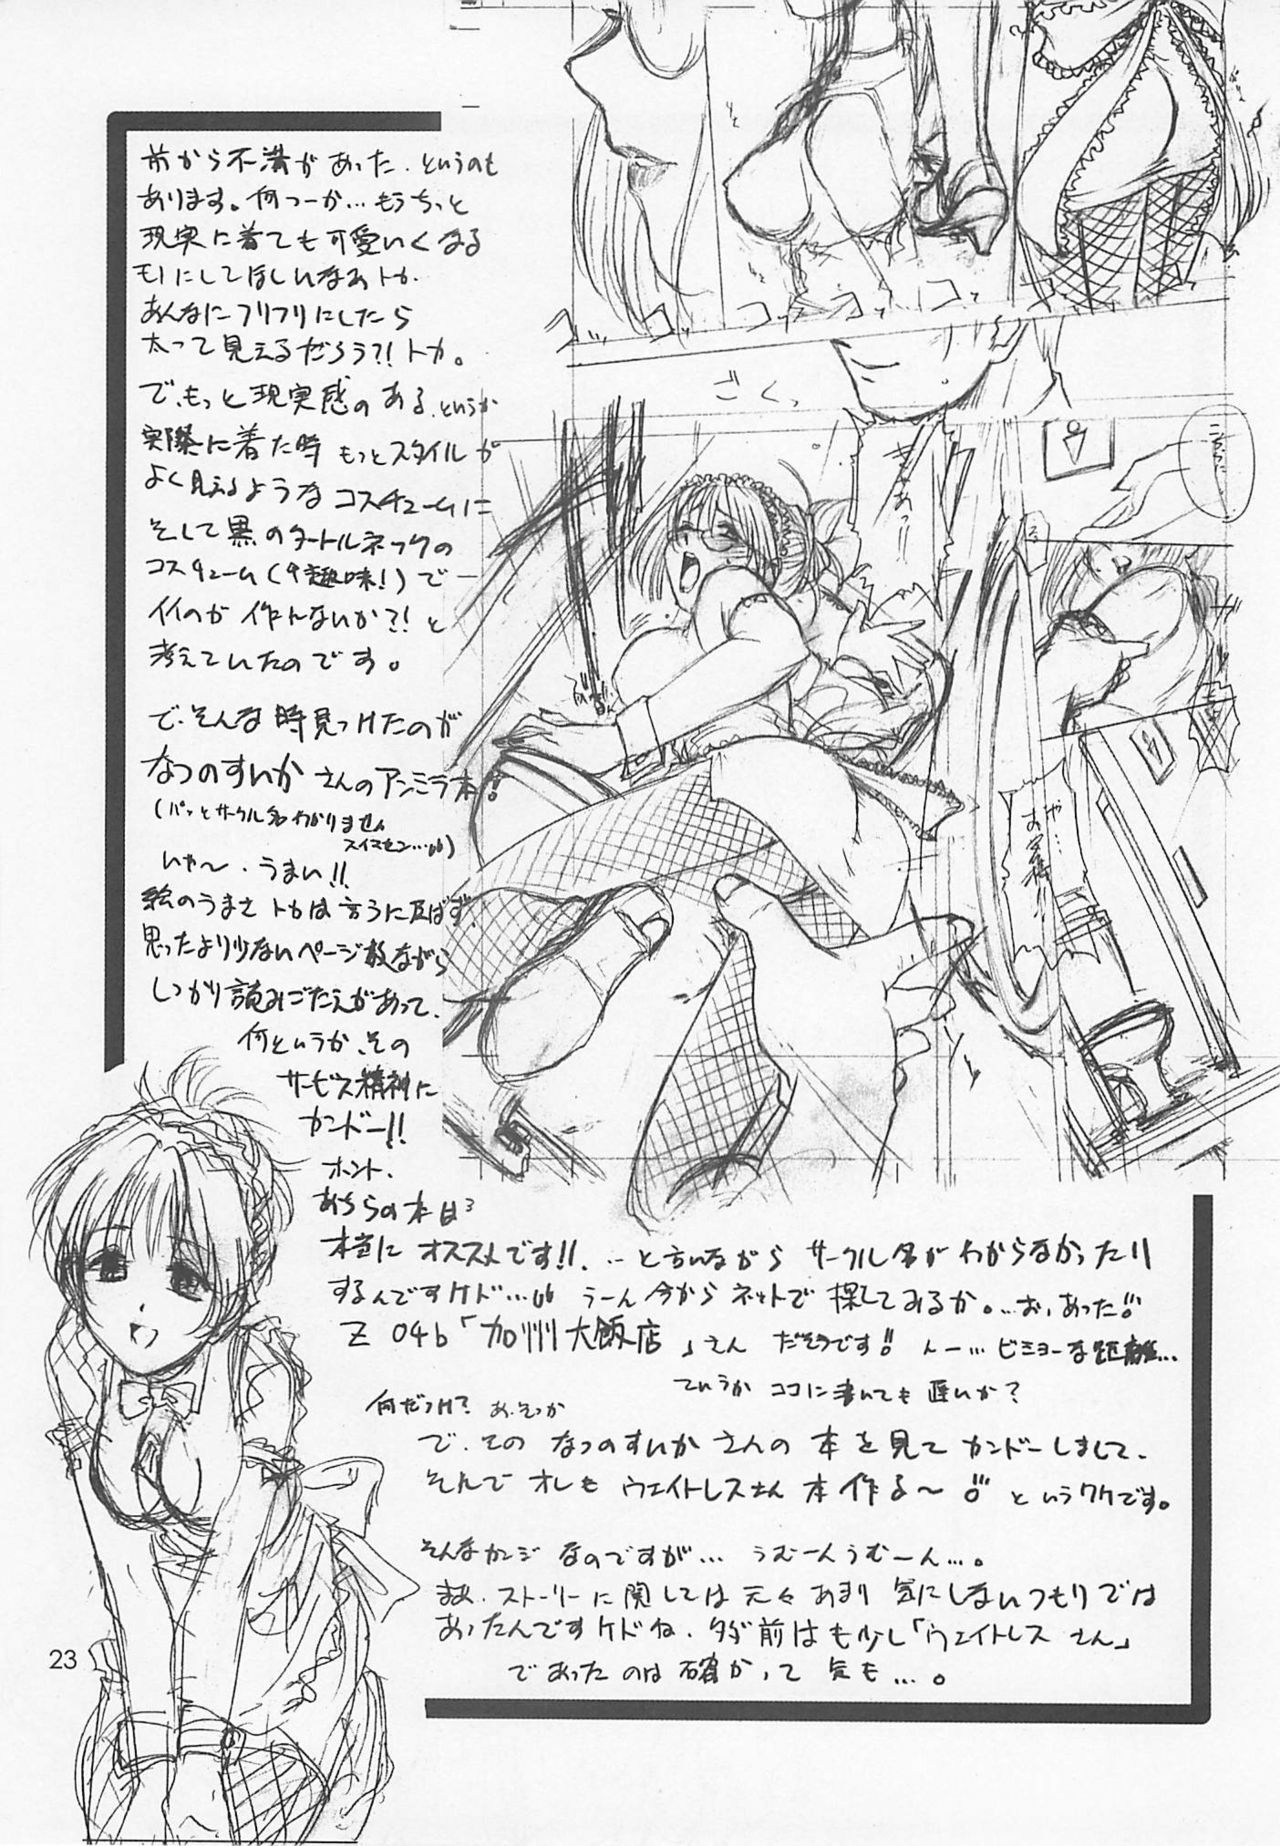 前から不満があった、というのも
あります。何つーか…もうちっと
現実に着ても可愛いくなる
モノにしてほしいなあトカ
あんなにフリフリにしたら
太って見えるだろう?!トカ。
で、もっと現実感のある、というか
実際に着た時もっとスタイルが
よく見えるようなコスチュームに
そして黒のタートルネックの
コスチューム(趣味!)で
イイのが作れないか?!と
考えていたのです。
で、そんな時見つけたのが
なつのすいかさんのアンミラ本!
(パッとサークル名わかりません
スイマセン…)
いや〜、うまい!!
絵のうまさトカは言うに及ばず、
思ったより少ないページ数ながら
しっかり読みごたえがあって、
何というか、その
サービス精神に
カンドー!!
ホント、
あちらの本は
本当にオススメです!!…と言いながらサークル名がわからなかったり
するんですケド… うーん今からネットで探してみるか。…お、あった!!
Z 04b「加州大飯店」さん だそうです!! んー…ビミョーな距離…
ていうかココに書いても遅いか?
何だっけ? あ、そっか
で、そのなつのすいかさんの本を見てカンドーしまして、
そんでオレもウェイトレスさん本作る〜!! というワケです。
そんなカンジなのですが…うむーんうむーん…。
まあ、ストーリーに関しては元々あまり気にしないつもりでは
あったんですケドね、多ダ前はも少し「ウェイトレスさん」
であったのは確かって気も…。
23
コッ
コッ
コッ
コッ
ごくっ
きゃあっ!
や…
お客様!!